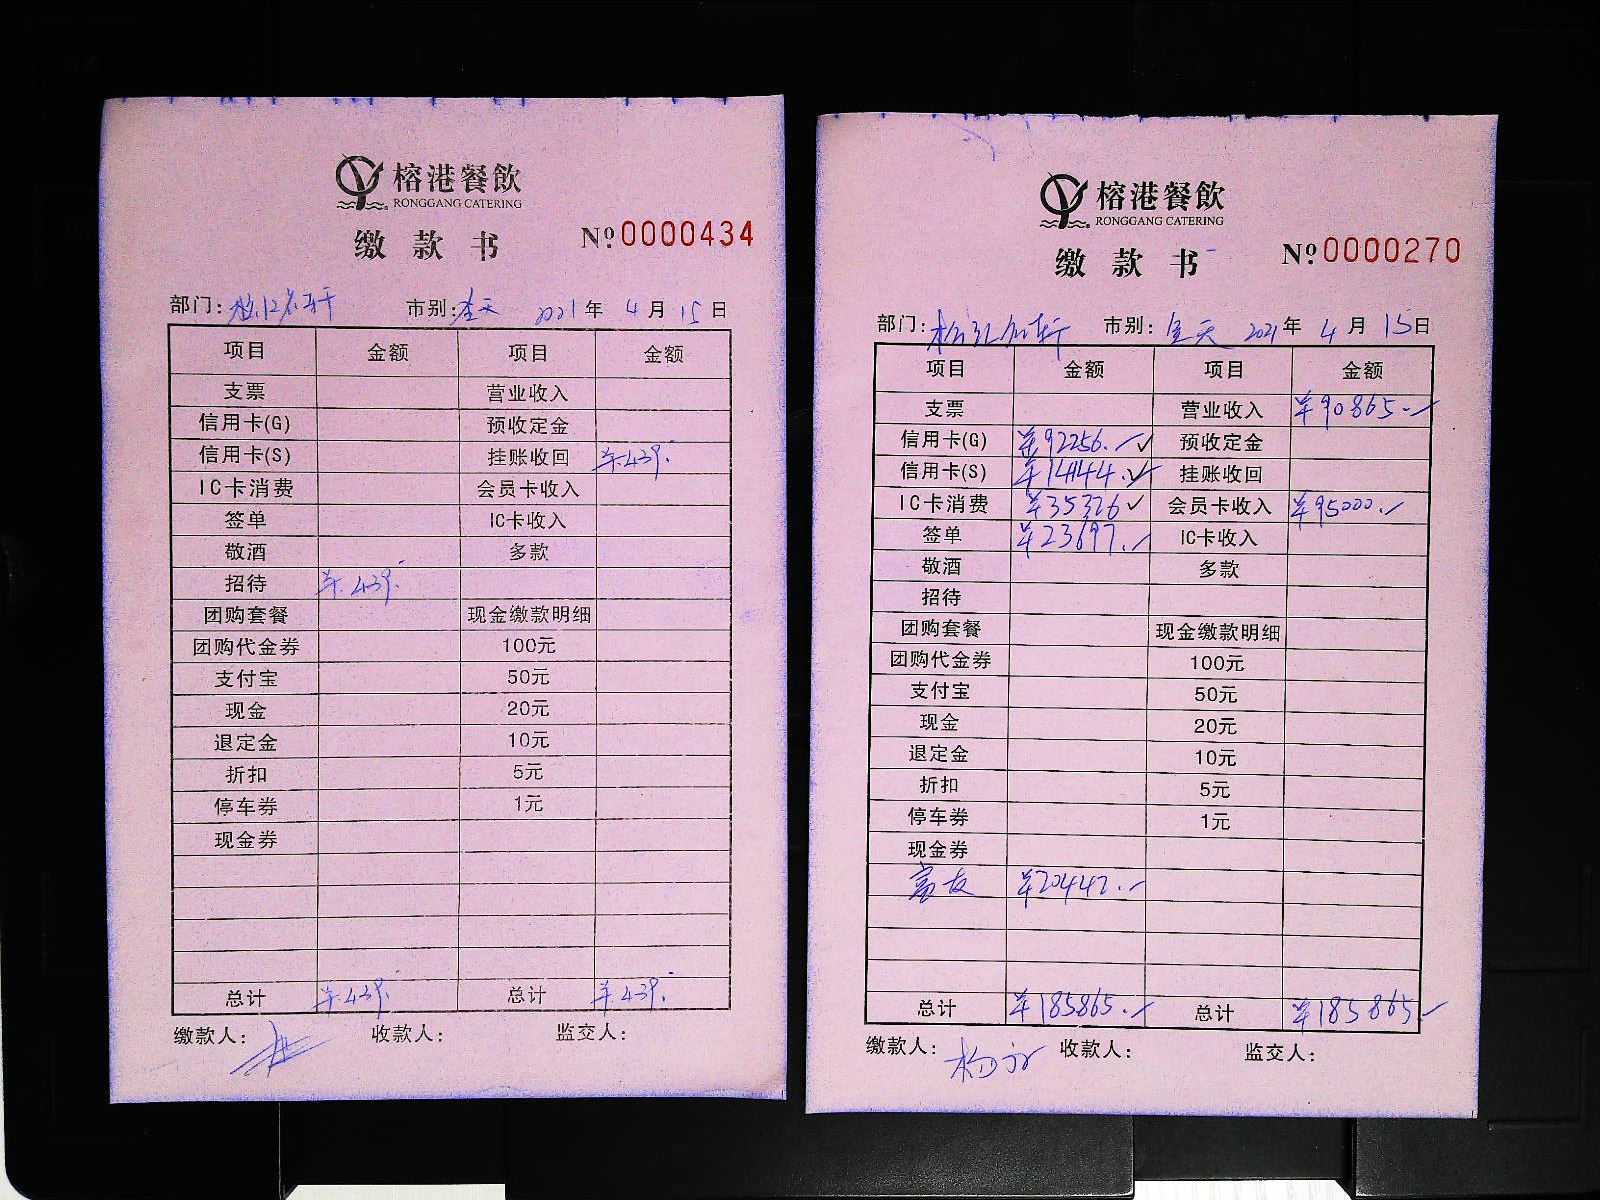 榕港餐飲
RONGGANG CATERING
缴款书
№0000434
部门: 松江名轩 市别: 全天 2021年 4月 15日
项目 金额 项目 金额
支票 营业收入
信用卡(G) 预收定金
信用卡(S) 挂账收回 ¥439.-
IC卡消费 会员卡收入
签单 IC卡收入
敬酒 多款
招待 ¥439.-
团购套餐 现金缴款明细
团购代金券 100元
支付宝 50元
现金 20元
退定金 10元
折扣 5元
停车券 1元
现金券
总计 ¥439.- 总计 ¥439.-
缴款人: 收款人: 监交人:
榕港餐飲
RONGGANG CATERING
缴款书
№0000270
部门: 松江名轩 市别: 全天 2021年 4月 15日
项目 金额 项目 金额
支票 营业收入 ¥90865.-
信用卡(G) ¥92256.- ✓ 预收定金
信用卡(S) ¥14144.- ✓ 挂账收回
IC卡消费 ¥35326 ✓ 会员卡收入 ¥95000.-
签单 ¥23697.- IC卡收入
敬酒 多款
招待
团购套餐 现金缴款明细
团购代金券 100元
支付宝 50元
现金 20元
退定金 10元
折扣 5元
停车券 1元
现金券
富友 ¥20442.-
总计 ¥185865.- 总计 ¥185865.-
缴款人: 收款人: 监交人: